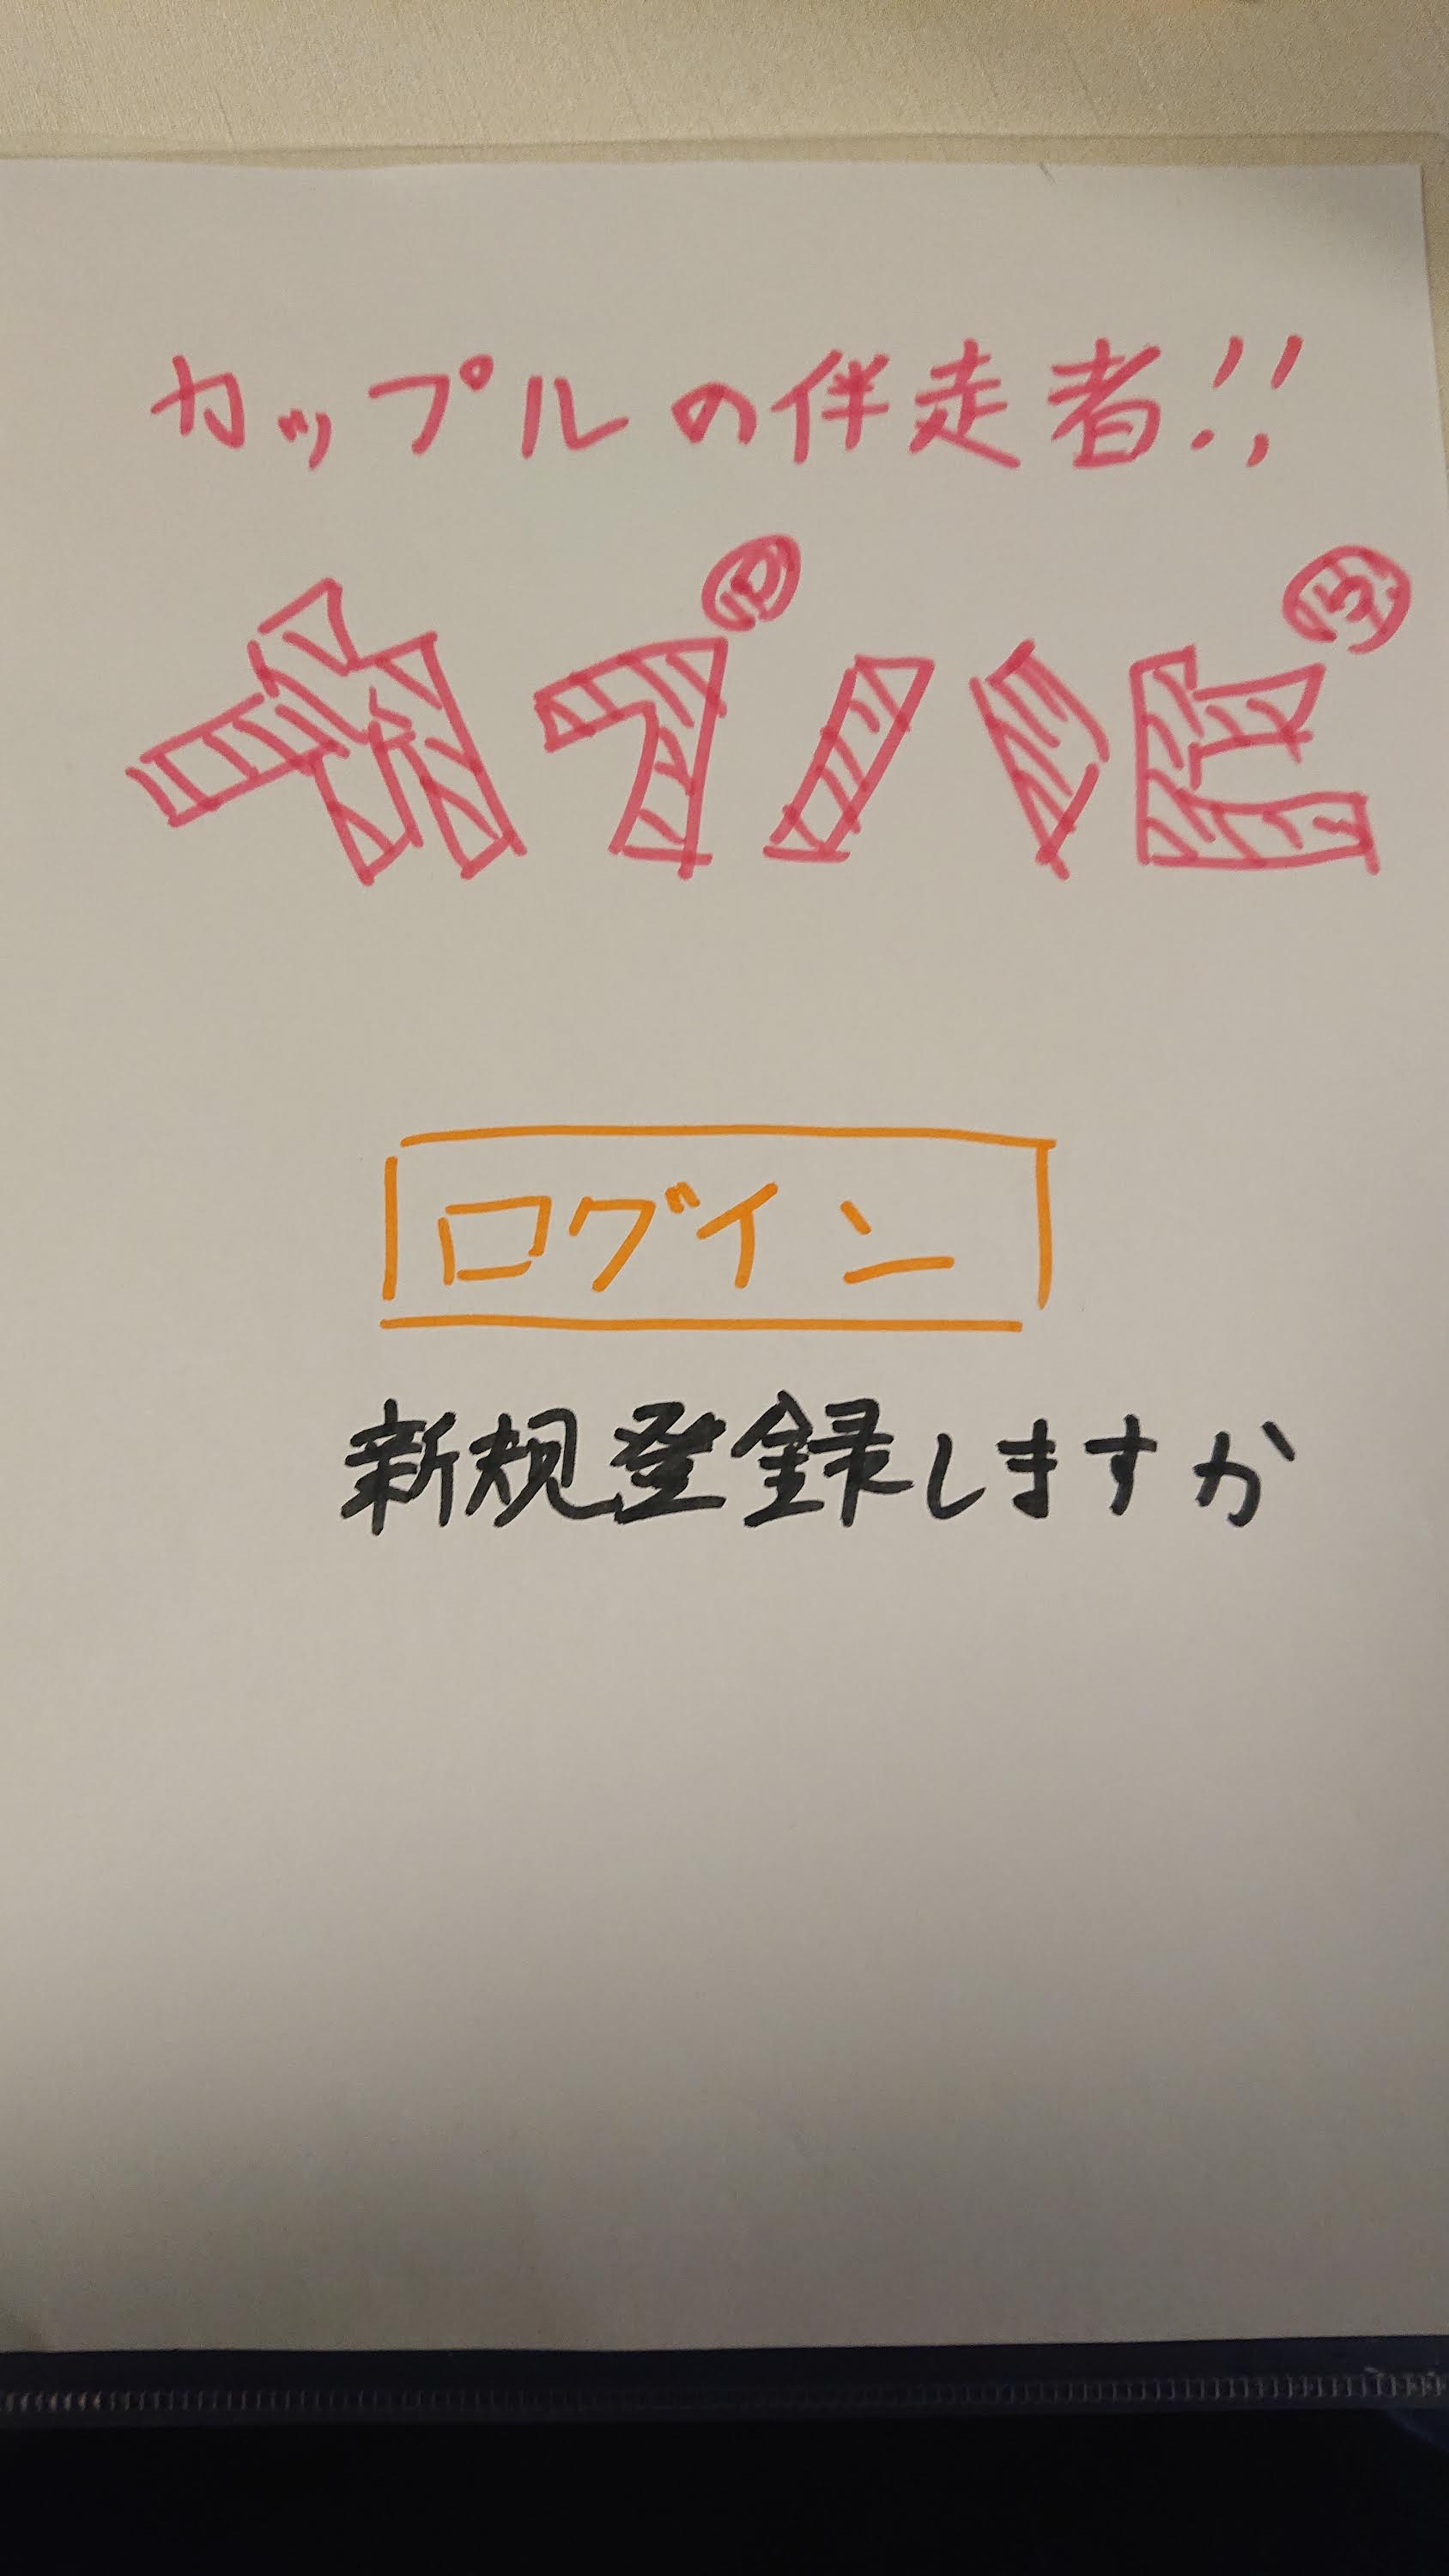 カップルの伴走者!!
カプハピ
ログイン
新規登録しますか